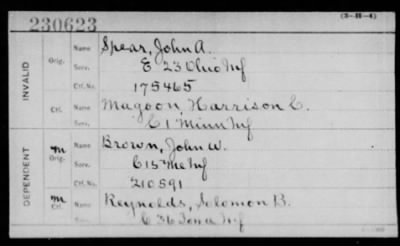 230623
(3-H-4)
INVALID
Orig. Name Spear, John A.
Serv. E 23 Ohio Inf
Ctf. No. 175465
Ctf. Name Magoon, Harrison C.
Serv. C 1 Minn Inf
DEPENDENT
M Orig. Name Brown, John W.
Serv. C 15 Me Inf
Ctf. No. 210591
M Ctf. Name Reynolds, Solomon B.
Serv. C 36 Iowa Inf